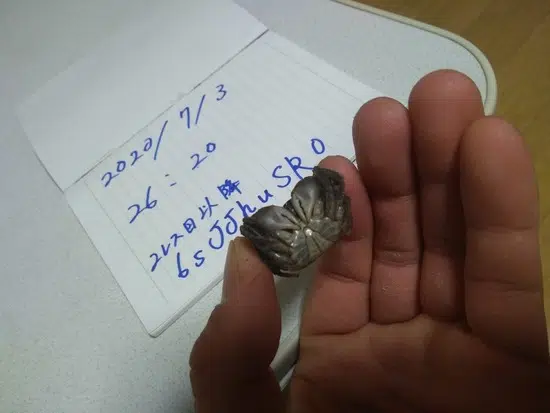 2020/7/3
26:20
2レス目以降
6sJJhuSRO